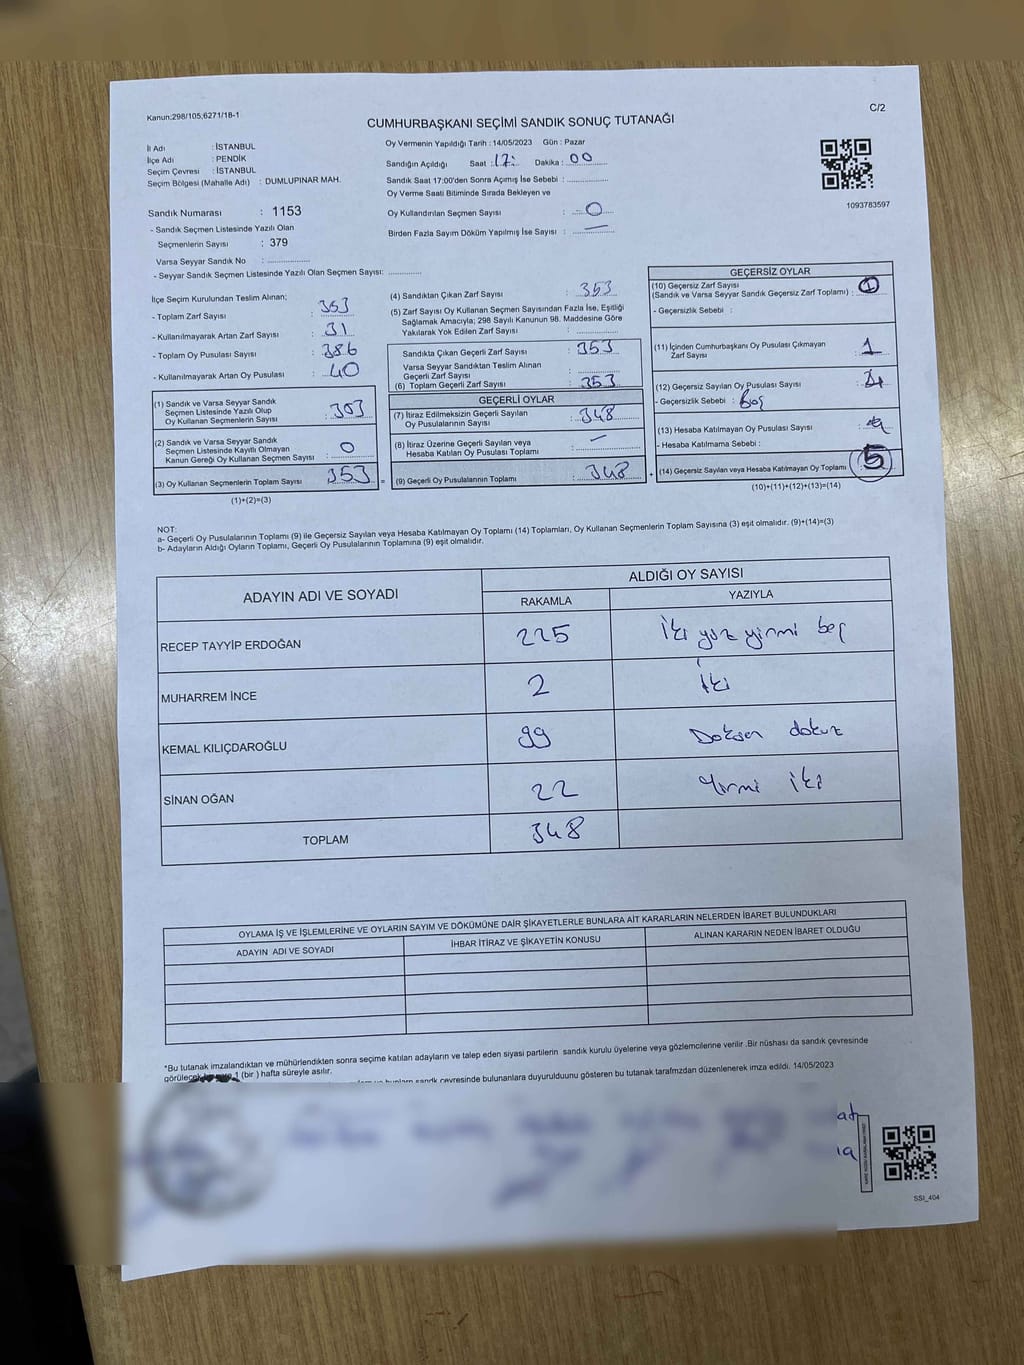 Kanun:298/105,6271/18-1
C/2
CUMHURBAŞKANI SEÇİMİ SANDIK SONUÇ TUTANAĞI
İl Adı : İSTANBUL
İlçe Adı : PENDİK
Seçim Çevresi : İSTANBUL
Seçim Bölgesi (Mahalle Adı) : DUMLUPINAR MAH.
Sandık Numarası : 1153
- Sandık Seçmen Listesinde Yazılı Olan
Seçmenlerin Sayısı : 379
Varsa Seyyar Sandık No : ....................
- Seyyar Sandık Seçmen Listesinde Yazılı Olan Seçmen Sayısı: ...............
Oy Vermenin Yapıldığı Tarih : 14/05/2023 Gün : Pazar
Sandığın Açıldığı Saat : 17: Dakika : 00
Sandık Saat 17:00'den Sonra Açımış İse Sebebi : ...................
Oy Verme Saati Bitiminde Sırada Bekleyen ve
Oy Kullandırılan Seçmen Sayısı : 0
Birden Fazla Sayım Döküm Yapılmış İse Sayısı : —
1093783597
İlçe Seçim Kurulundan Teslim Alınan;
- Toplam Zarf Sayısı : 353
- Kullanılmayarak Artan Zarf Sayısı : 31
- Toplam Oy Pusulası Sayısı : 386
- Kullanılmayarak Artan Oy Pusulası : 40
(1) Sandık ve Varsa Seyyar Sandık
Seçmen Listesinde Yazılı Olup
Oy Kullanan Seçmenlerin Sayısı : 353
(2) Sandık ve Varsa Seyyar Sandık
Seçmen Listesinde Kayıtlı Olmayan
Kanun Gereği Oy Kullanan Seçmen Sayısı : 0
(3) Oy Kullanan Seçmenlerin Toplam Sayısı : 353
(1)+(2)=(3)
(4) Sandıktan Çıkan Zarf Sayısı : 353
(5) Zarf Sayısı Oy Kullanan Seçmen Sayısından Fazla İse, Eşitliği
Sağlamak Amacıyla; 298 Sayılı Kanunun 98. Maddesine Göre
Yakılarak Yok Edilen Zarf Sayısı : ..............
Sandıkta Çıkan Geçerli Zarf Sayısı : 353
Varsa Seyyar Sandıktan Teslim Alınan
Geçerli Zarf Sayısı :
(6) Toplam Geçerli Zarf Sayısı : 353
GEÇERLİ OYLAR
(7) İtiraz Edilmeksizin Geçerli Sayılan
Oy Pusulalarının Sayısı : 348
(8) İtiraz Üzerine Geçerli Sayılan veya
Hesaba Katılan Oy Pusulası Toplamı : —
= (9) Geçerli Oy Pusulalarının Toplamı : 348 +
GEÇERSİZ OYLAR
(10) Geçersiz Zarf Sayısı
(Sandık ve Varsa Seyyar Sandık Geçersiz Zarf Toplamı) :
- Geçersizlik Sebebi :
(11) İçinden Cumhurbaşkanı Oy Pusulası Çıkmayan
Zarf Sayısı : 1
(12) Geçersiz Sayılan Oy Pusulası Sayısı :
- Geçersizlik Sebebi : Boş
(13) Hesaba Katılmayan Oy Pusulası Sayısı :
- Hesaba Katılmama Sebebi :
(14) Geçersiz Sayılan veya Hesaba Katılmayan Oy Toplamı : 5
(10)+(11)+(12)+(13)=(14)
NOT:
a- Geçerli Oy Pusulalarının Toplamı (9) ile Geçersiz Sayılan veya Hesaba Katılmayan Oy Toplamı (14) Toplamları, Oy Kullanan Seçmenlerin Toplam Sayısına (3) eşit olmalıdır. (9)+(14)=(3)
b- Adayların Aldığı Oyların Toplamı, Geçerli Oy Pusulalarının Toplamına (9) eşit olmalıdır.
ADAYIN ADI VE SOYADI
ALDIĞI OY SAYISI
RAKAMLA YAZIYLA
RECEP TAYYİP ERDOĞAN 225 İki yüz yirmi beş
MUHARREM İNCE 2 İki
KEMAL KILIÇDAROĞLU 99 Doksan dokuz
SİNAN OĞAN 22 Yirmi iki
TOPLAM 348
OYLAMA İŞ VE İŞLEMLERİNE VE OYLARIN SAYIM VE DÖKÜMÜNE DAİR ŞİKAYETLERLE BUNLARA AİT KARARLARIN NELERDEN İBARET BULUNDUKLARI
ADAYIN ADI VE SOYADI İHBAR İTİRAZ VE ŞİKAYETİN KONUSU ALINAN KARARIN NEDEN İBARET OLDUĞU
*Bu tutanak imzalandıktan ve mühürlendikten sonra seçime katılan adayların ve talep eden siyasi partilerin sandık kurulu üyelerine veya gözlemcilerine verilir .Bir nüshası da sandık çevresinde
görülecek 1 (bir ) hafta süreyle asılır.
sandık çevresinde bulunanlara duyurulduunu gösteren bu tutanak tarafmzdan düzenlenerek imza edildi. 14/05/2023
SSI_404